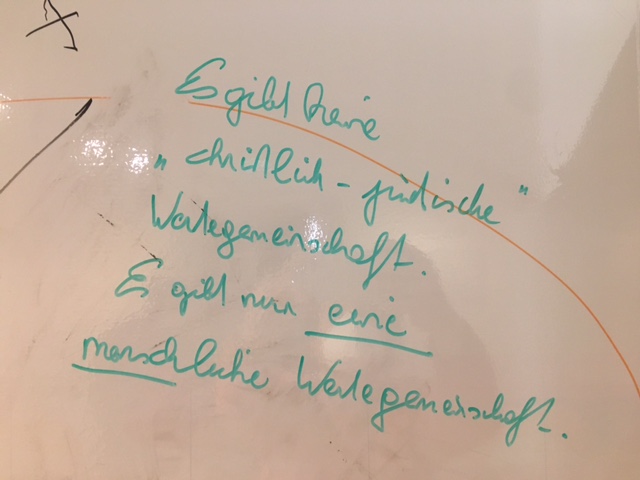 Es gibt keine
„christlich-jüdische"
Wertegemeinschaft.
Es gibt nur eine
menschliche Wertegemeinschaft.